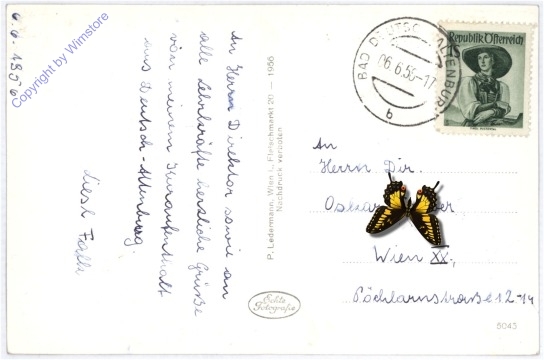 6.6.1956
Copyright by Wimstore
An Herrn Direktor sowie an
alle Lehrkräfte herzliche Grüße
von meinem Kuraufenthalt
aus Deutsch-Altenburg.
P. Ledermann, Wien I., Fleischmarkt 20 — 1956
Nachdruck verboten
Echte
Fotografie
BAD DEUTSCH ALTENBURG
06.6.56-17
b
Republik Österreich
An
Herrn Dir.
Wien XX.,
Pöchlarnstraße 12-14
5043